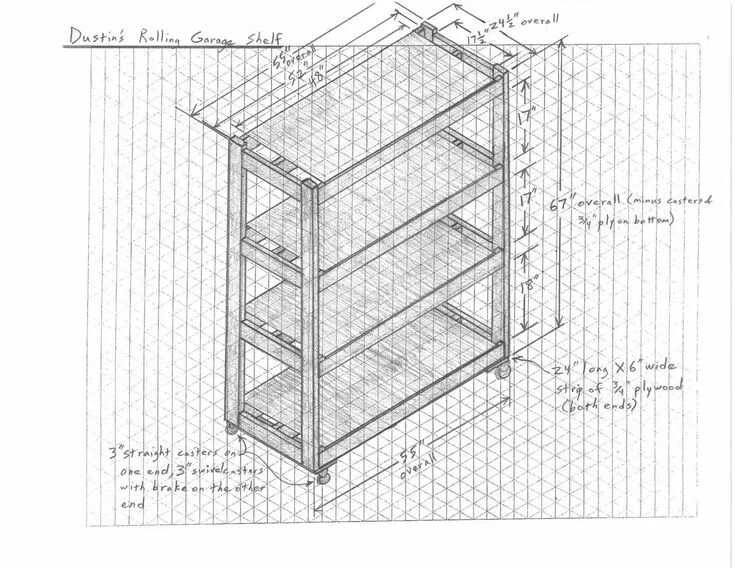 Dustin's Rolling Garage Shelf
55" overall
52"
48"
24½" overall
17½"
17"
17"
18"
67" overall (minus casters &
¾" ply on bottom)
24" long X 6" wide
strip of ¾" plywood
(both ends)
55"
overall
3" straight casters on
one end, 3" swivel casters
with brake on the other
end